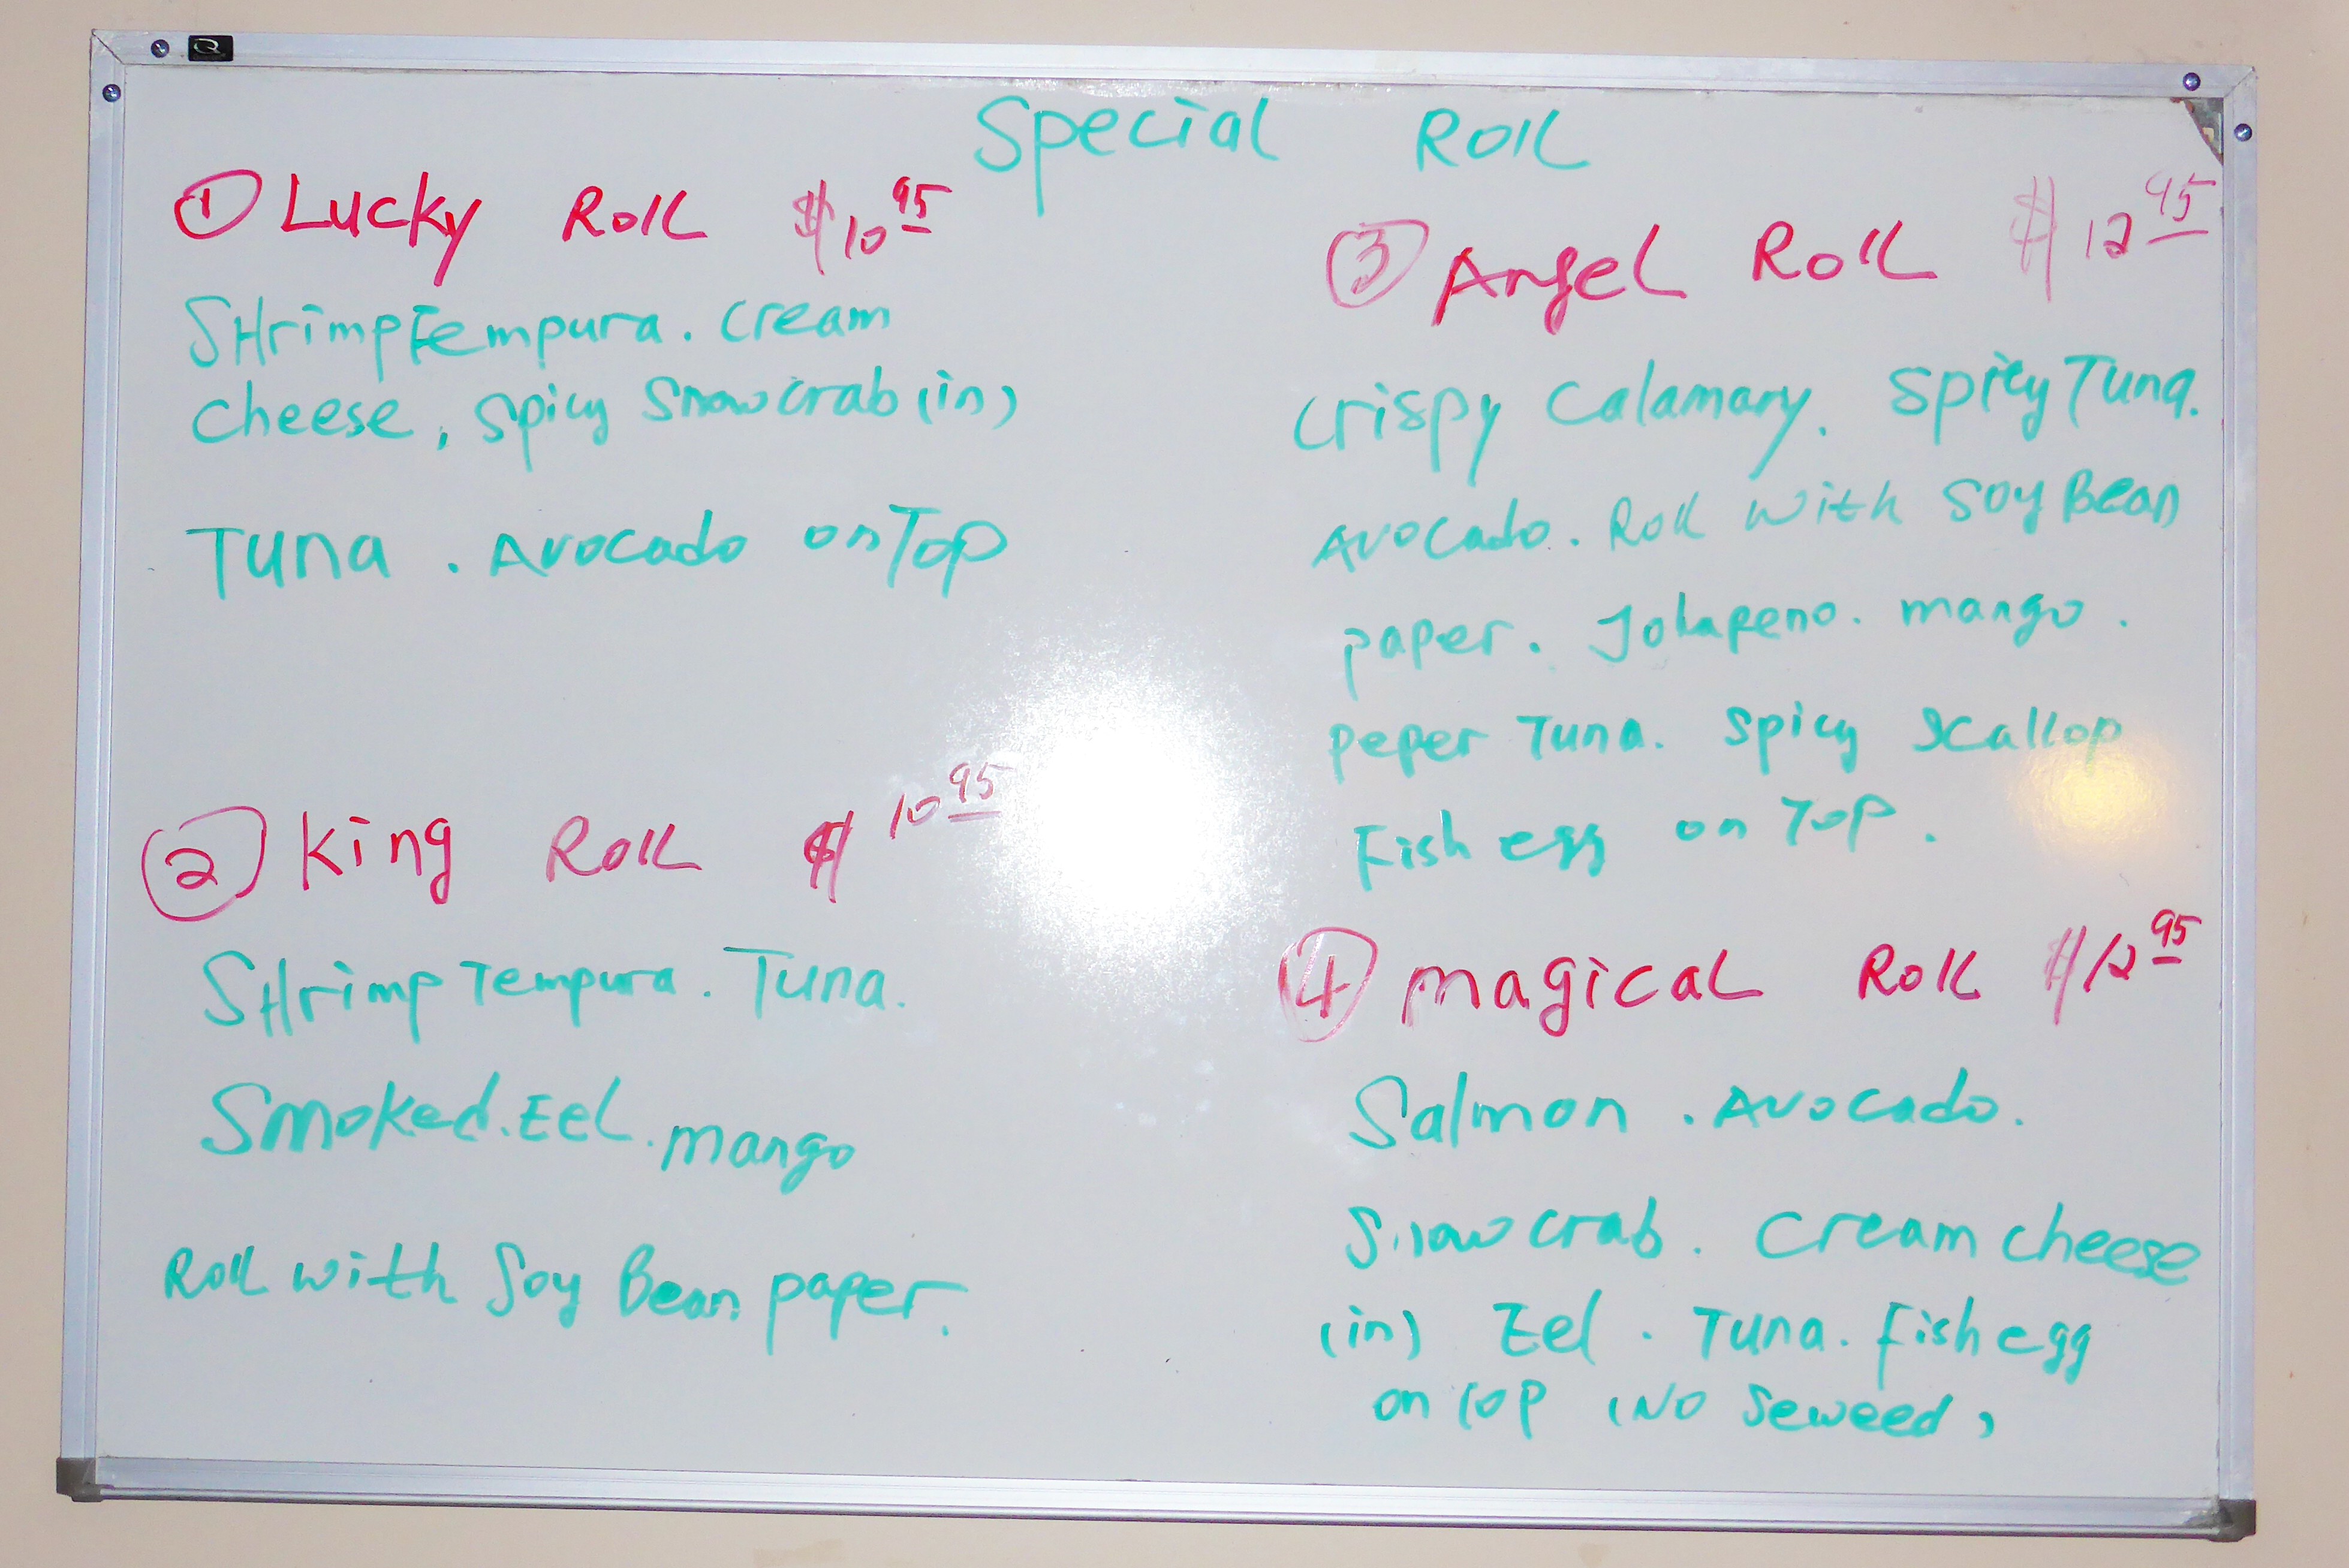 Special Roll
① Lucky Roll $10 95
SHrimp Tempura. cream
cheese, Spicy Snow crab (in)
Tuna. Avocado on Top
② King Roll $10 95
SHrimp Tempura. Tuna.
Smoked. Eel. mango
Roll with Soy Bean paper.
③ Angel Roll $12 95
crispy Calamary. Spicy Tuna.
Avocado. Roll with Soy Bean
paper. Jolapeno. mango.
peper Tuna. Spicy Scallop
Fish egg on Top.
④ magical Roll $12 95
Salmon. Avocado.
Snow crab. Cream cheese
(in) Eel. Tuna. Fish egg
on top (No Seweed)